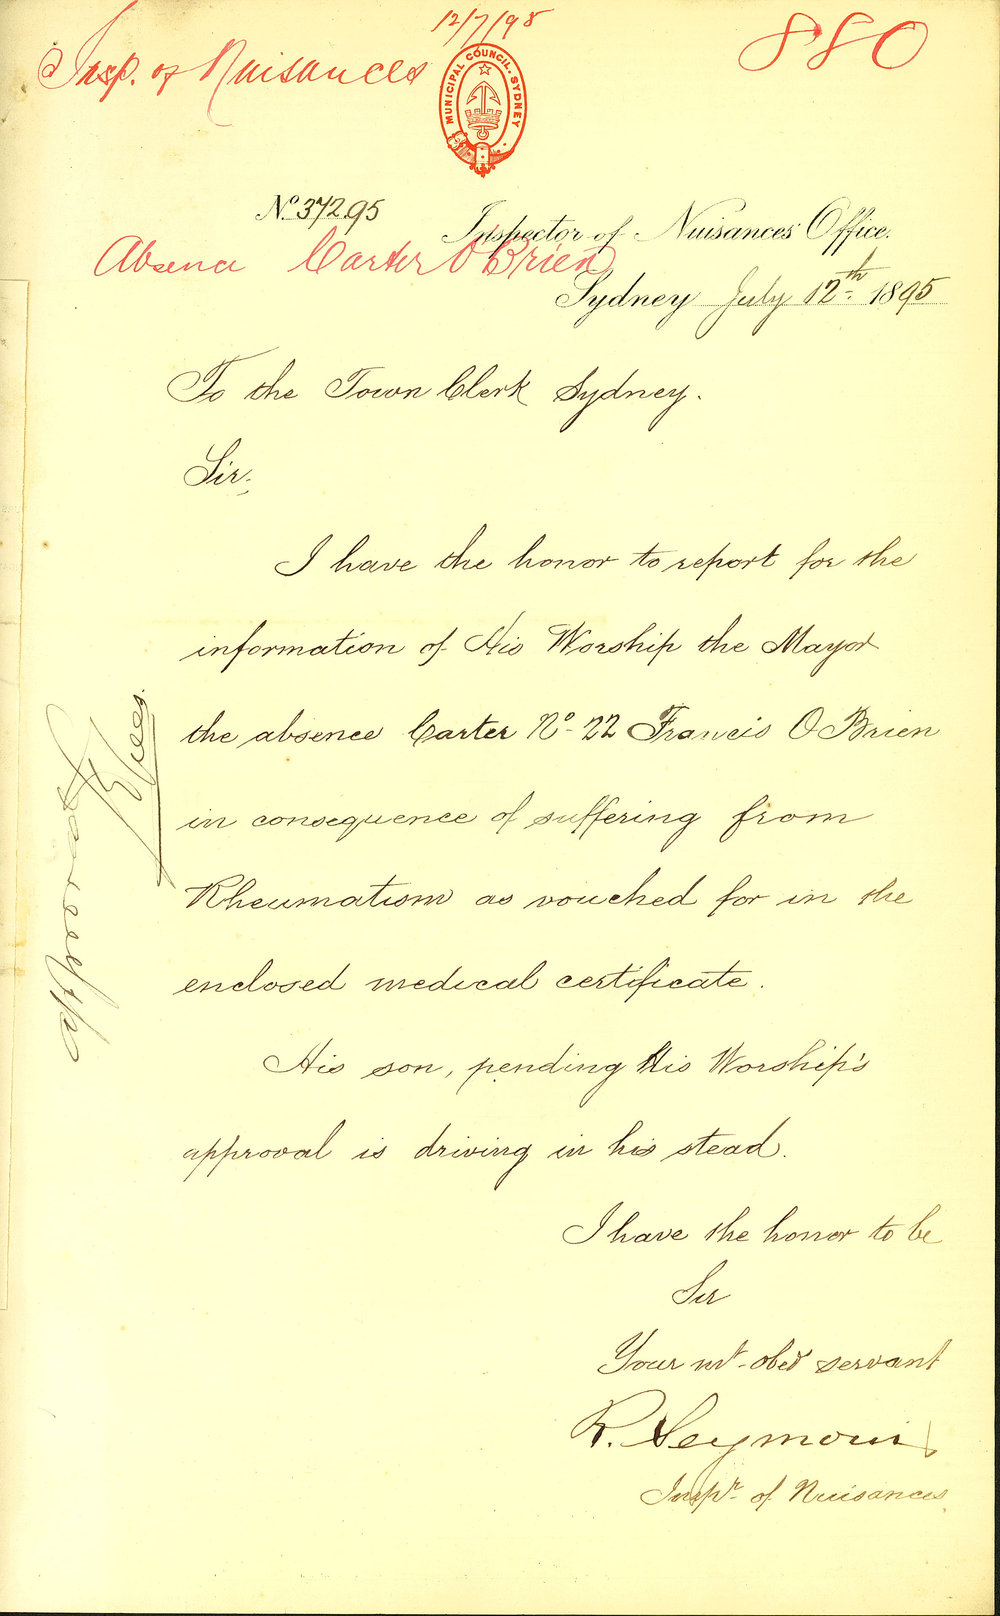 12/7/95
Insp. of Nuisances
880
MUNICIPAL COUNCIL. SYDNEY
No. 372.95
Inspector of Nuisances Office.
Absence Carter O'Brien
Sydney July 12th. 1895
To the Town Clerk Sydney.
Sir,
I have the honor to report for the
information of His Worship the Mayor
the absence Carter No. 22 Francis O'Brien
in consequence of suffering from
Rheumatism as vouched for in the
enclosed medical certificate.
His son, pending His Worship's
approval is driving in his stead.
I have the honor to be
Sir
Your mt. obed servant
R. Seymour
Inspr. of Nuisances